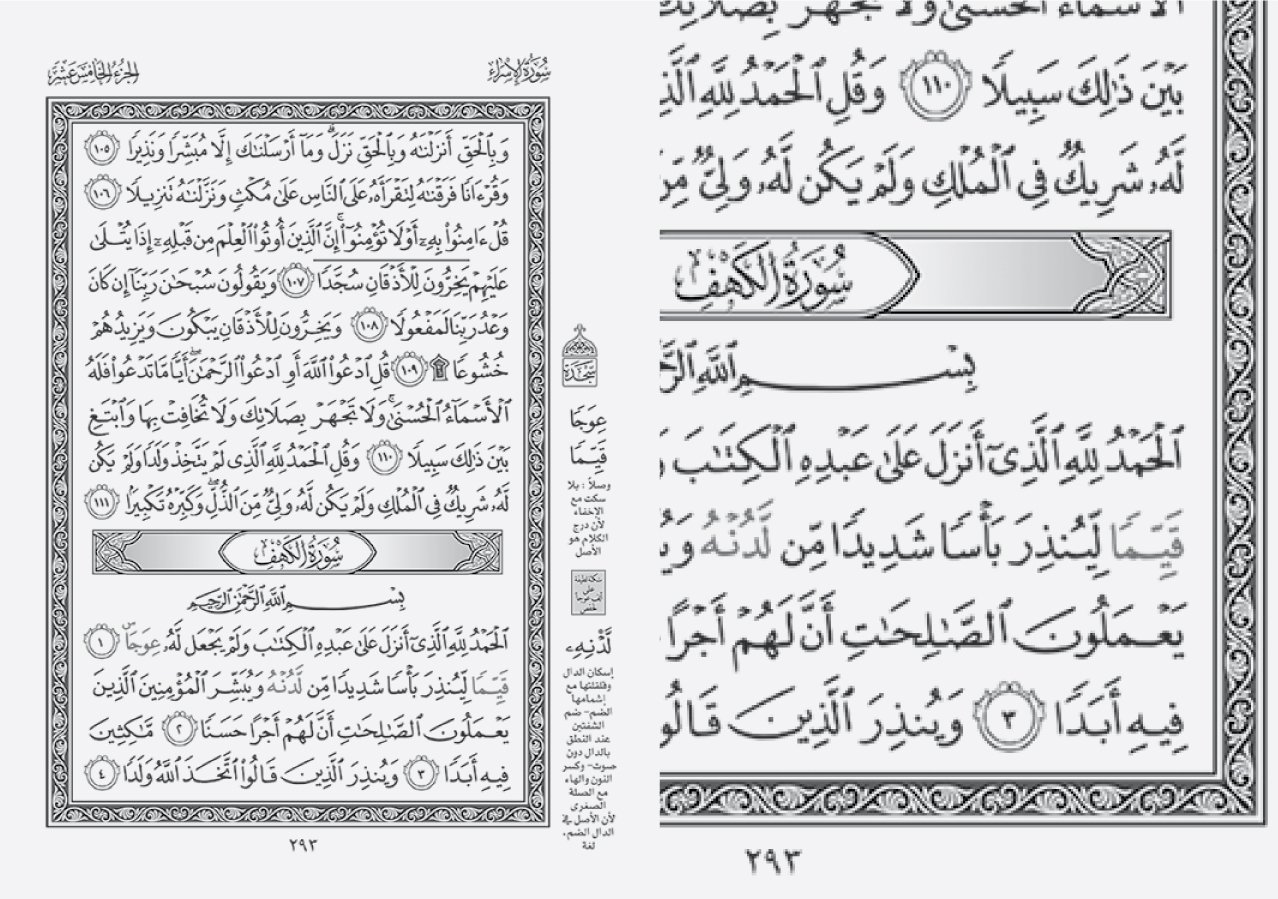 سُورَةُ الإِسْرَاء
الجُزْءُ الخَامِسَ عَشَرَ
وَبِالْحَقِّ أَنزَلْنَٰهُ وَبِالْحَقِّ نَزَلَ ۗ وَمَآ أَرْسَلْنَٰكَ إِلَّا مُبَشِّرًا وَنَذِيرًا ١٠٥
وَقُرْءَانًا فَرَقْنَٰهُ لِتَقْرَأَهُۥ عَلَى النَّاسِ عَلَىٰ مُكْثٍ وَنَزَّلْنَٰهُ تَنزِيلًا ١٠٦
قُلْ ءَامِنُوا۟ بِهِۦٓ أَوْ لَا تُؤْمِنُوٓا۟ ۚ إِنَّ الَّذِينَ أُوتُوا۟ الْعِلْمَ مِن قَبْلِهِۦٓ إِذَا يُتْلَىٰ
عَلَيْهِمْ يَخِرُّونَ لِلْأَذْقَانِ سُجَّدًا ١٠٧ وَيَقُولُونَ سُبْحَٰنَ رَبِّنَآ إِن كَانَ
وَعْدُ رَبِّنَا لَمَفْعُولًا ١٠٨ وَيَخِرُّونَ لِلْأَذْقَانِ يَبْكُونَ وَيَزِيدُهُمْ
خُشُوعًا ۩ ١٠٩ قُلِ ادْعُوا۟ اللَّهَ أَوِ ادْعُوا۟ الرَّحْمَٰنَ ۖ أَيًّا مَّا تَدْعُوا۟ فَلَهُ
الْأَسْمَآءُ الْحُسْنَىٰ ۚ وَلَا تَجْهَرْ بِصَلَاتِكَ وَلَا تُخَافِتْ بِهَا وَابْتَغِ
بَيْنَ ذَٰلِكَ سَبِيلًا ١١٠ وَقُلِ الْحَمْدُ لِلَّهِ الَّذِى لَمْ يَتَّخِذْ وَلَدًا وَلَمْ يَكُن
لَّهُۥ شَرِيكٌ فِى الْمُلْكِ وَلَمْ يَكُن لَّهُۥ وَلِىٌّ مِّنَ الذُّلِّ ۖ وَكَبِّرْهُ تَكْبِيرًا ١١١
سُورَةُ الْكَهْفِ
بِسْمِ اللَّهِ الرَّحْمَٰنِ الرَّحِيمِ
الْحَمْدُ لِلَّهِ الَّذِىٓ أَنزَلَ عَلَىٰ عَبْدِهِ الْكِتَٰبَ وَلَمْ يَجْعَل لَّهُۥ عِوَجَا ۜ ١
قَيِّمًا لِّيُنذِرَ بَأْسًا شَدِيدًا مِّن لَّدُنْهُ وَيُبَشِّرَ الْمُؤْمِنِينَ الَّذِينَ
يَعْمَلُونَ الصَّٰلِحَٰتِ أَنَّ لَهُمْ أَجْرًا حَسَنًا ٢ مَّٰكِثِينَ
فِيهِ أَبَدًا ٣ وَيُنذِرَ الَّذِينَ قَالُوا۟ اتَّخَذَ اللَّهُ وَلَدًا ٤
٢٩٣
سَجْدَة
عِوَجًا
قَيِّمًا
وصلاً : بلا
سكت مع
الإخفاء
لأن درج
الكلام هو
الأصل
سكتة لطيفة
على
ألف عوجا
لحفص
لَّدْنِهِۦ
إسكان الدال
وقلقلتها مع
إشمامها
الضم- ضم
الشفتين
عند النطق
بالدال دون
صوت- وكسر
النون والهاء
مع الصلة
الصغرى
لأن الأصل في
الدال الضم.
لغة
الْأَسْمَآءُ الْحُسْنَىٰ وَلَا تَجْهَرْ بِصَلَاتِكَ
بَيْنَ ذَٰلِكَ سَبِيلًا ١١٠ وَقُلِ الْحَمْدُ لِلَّهِ الَّذِ
لَّهُۥ شَرِيكٌ فِى الْمُلْكِ وَلَمْ يَكُن لَّهُۥ وَلِىٌّ مِّنَ
سُورَةُ الْكَهْفِ
بِسْمِ اللَّهِ الرَّحْمَ
الْحَمْدُ لِلَّهِ الَّذِىٓ أَنزَلَ عَلَىٰ عَبْدِهِ الْكِتَٰبَ وَ
قَيِّمًا لِّيُنذِرَ بَأْسًا شَدِيدًا مِّن لَّدُنْهُ وَيُ
يَعْمَلُونَ الصَّٰلِحَٰتِ أَنَّ لَهُمْ أَجْرًا
فِيهِ أَبَدًا ٣ وَيُنذِرَ الَّذِينَ قَالُو
٢٩٣